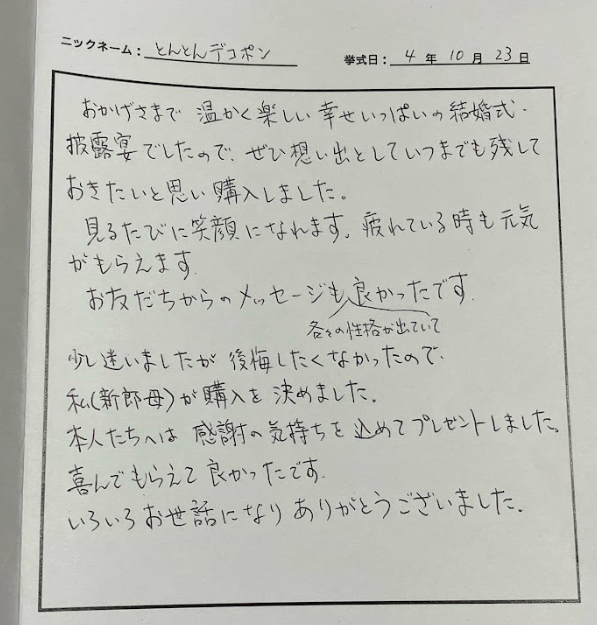 ニックネーム：とんとんデコポン 挙式日：4年10月23日
おかげさまで 温かく楽しい 幸せいっぱいの結婚式・
披露宴でしたので、ぜひ想い出としていつまでも残して
おきたいと思い購入しました。
見るたびに笑顔になれます。疲れている時も元気
がもらえます。
お友だちからのメッセージも良かったです。
各々の性格が出ていて
少し迷いましたが 後悔したくなかったので、
私(新郎母)が購入を決めました。
本人たちへは 感謝の気持ちを込めてプレゼントしました。
喜んでもらえて良かったです。
いろいろお世話になり ありがとうございました。